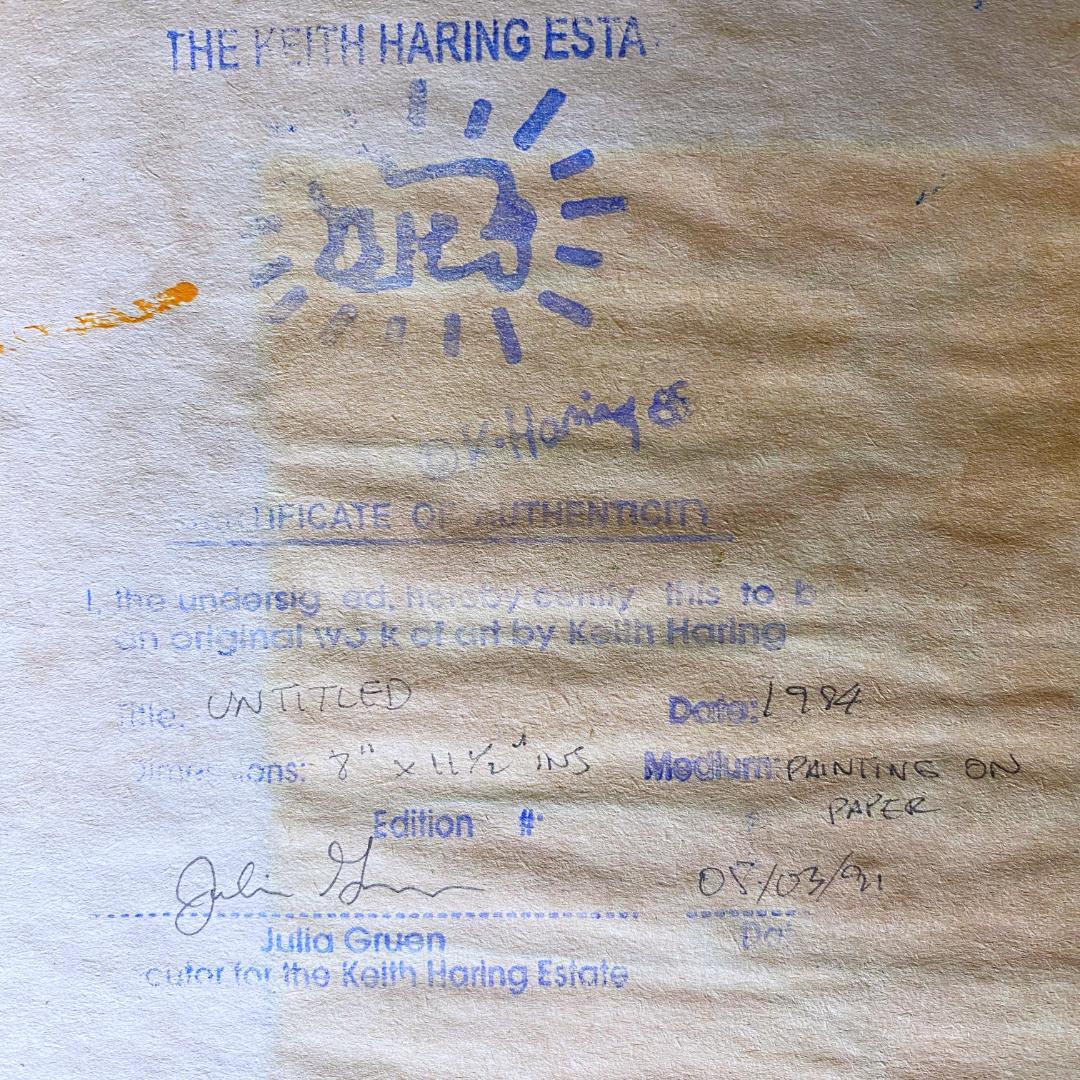 THE KEITH HARING ESTA
© K. Haring 85
CERTIFICATE OF AUTHENTICITY
I, the undersig ed, hereby certify this to b
an original wo k of art by Keith Haring
Title: UNTITLED Date: 1984
Dimensions: 8" x 11 1/2" INS Medium: PAINTING ON
PAPER
Edition #
Julia Gruen 05/03/91
Julia Gruen Dat
cutor for the Keith Haring Estate